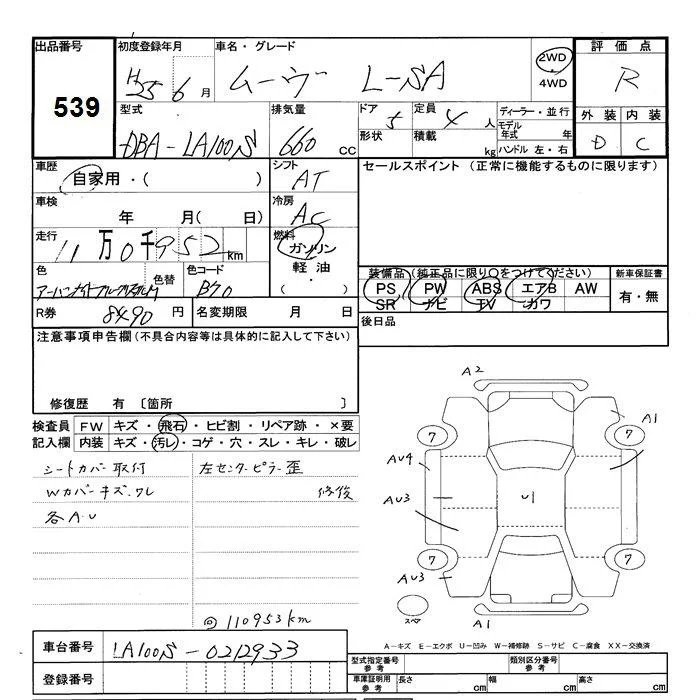 出品番号 初度登録年月 車名・グレード 評価点
539
H25 6 月 ムーヴ L-SA 2WD 4WD R
型式 排気量 ドア 5 定員 4 人 ディーラー・並行 外装 内装
DBA-LA100S 660 cc 形状 積載 kg モデル年式 年 ハンドル 左・右 D C
車歴 シフト セールスポイント (正常に機能するものに限ります)
自家用・( ) AT
車検 冷房
年 月( 日) AC
走行 燃料
11 万 0 千 952 km ガソリン
色 色替 色コード 軽油・ 装備品 (純正品に限り○をつけてください) 新車保証書
B70 ( ) PS PW ABS エアB AW 有・無
SR ナビ TV カワ
R券 8490 円 名変期限 月 日 後日品
注意事項申告欄 (不具合内容等は具体的に記入して下さい)
修復歴 有 〔箇所 〕
検査員 FW キズ・飛石・ヒビ割・リペア跡・×要
記入欄 内装 キズ・汚レ・コゲ・穴・スレ・キレ・破レ
シートカバー取付 左センターピラー歪
Wカバーキズ.ワレ 修後
各A.U
A2
7 7 A1
AU4
AU3 U1
7 7
AU3
スペア A1
@110953km
A-キズ E-エクボ U-凹み W-補修跡 S-サビ C-腐食 XX-交換済
車台番号 LA100S-0212933
型式指定番号 参考 類別区分番号 参考
登録番号 車庫証明用 参考 長さ cm 幅 cm 高さ cm